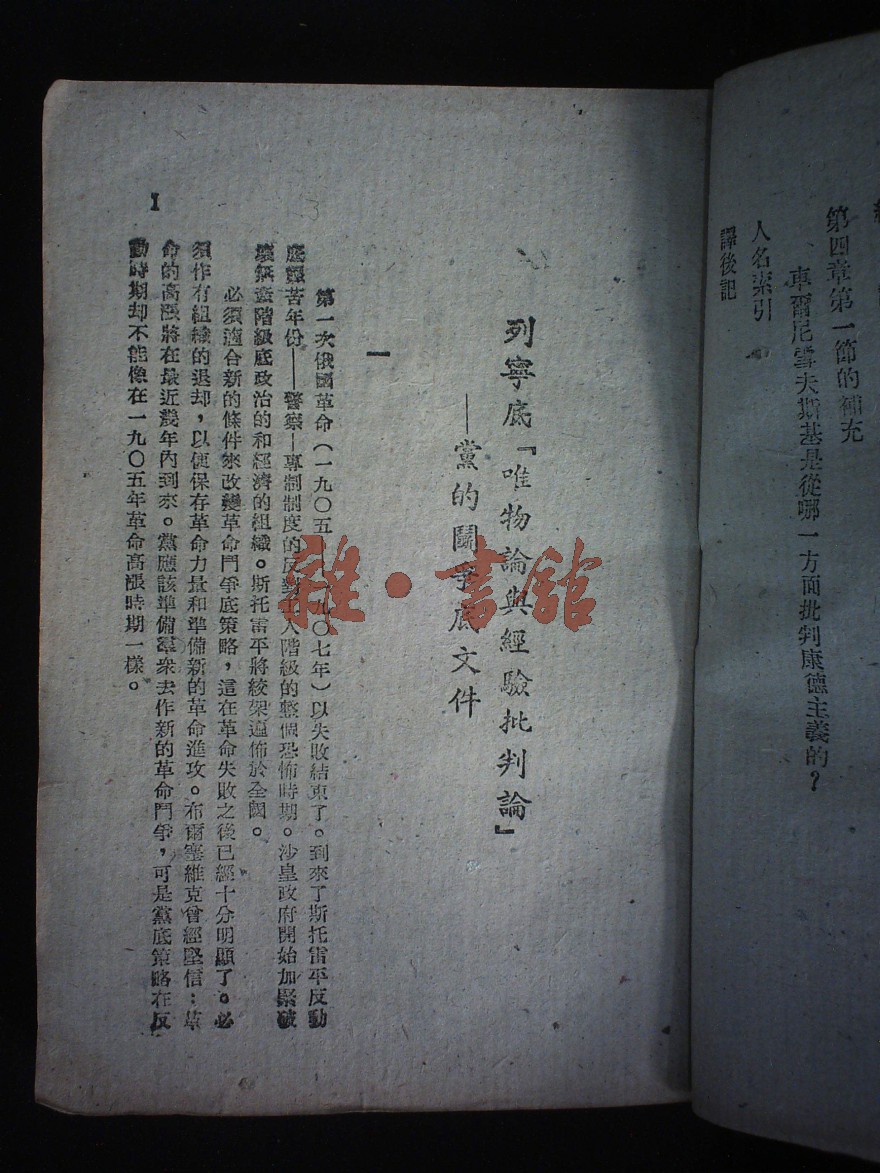 第四章第一節的補充
車爾尼雪夫斯基是從哪一方面批判康德主義的？
人名索引
譯後記
列寧底「唯物論與經驗批判論」
——黨的鬭爭底文件
一
第一次俄國革命（一九〇五—一九〇七年）以失敗結束了。到來了斯托雷平反動
底艱苦年份——警察—專制制度的反對工人階級的整個恐怖時期。沙皇政府開始加緊破
壞無產階級底政治的和經濟的組織。斯托雷平將絞架遍佈於全國。
必須適合新的條件來改變革命鬥爭底策略，這在革命失敗之後已經十分明顯了。必
須作有組織的退却，以便保存革命力量和準備新的革命進攻。布爾塞維克曾經堅信：革
命的高漲將在最近幾年內到來。黨應該準備羣衆去作新的革命鬥爭，可是黨底策略在反
動時期却不能像在一九〇五年革命高漲時期一樣。
I
3
雜·書館